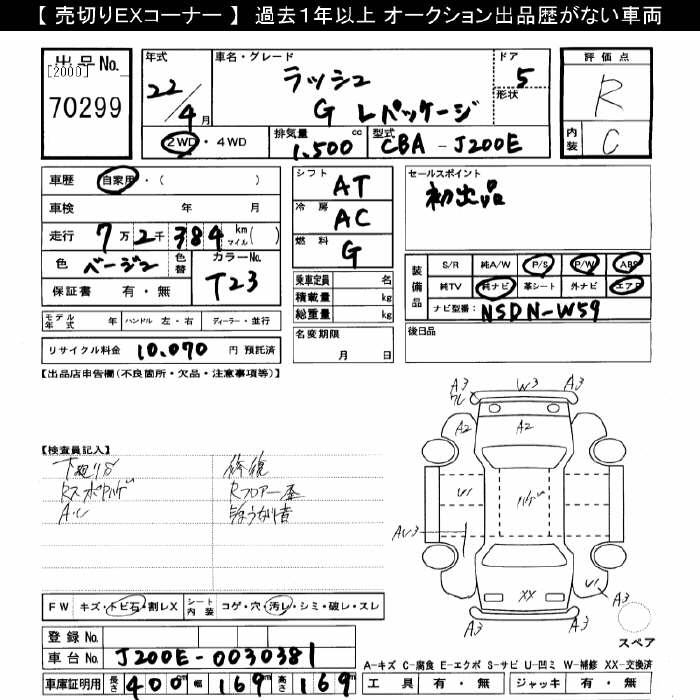 【 売切りEXコーナー 】 過去１年以上 オークション出品歴がない車両
出品No.
[2000]
70299
年式
22/4月
車名・グレード
ラッシュ
G Lパッケージ
ドア
5
形状
評価点
R
内装
C
2WD・4WD
排気量
1,500 cc
型式
CBA-J200E
車歴
自家用・( )
車検 年 月
走行 7万2千384 km マイル( )
色 ベージュ 色替
カラーNo.
T23
保証書 有・無
シフト
AT
冷房
AC
燃料
G
セールスポイント
初出品
乗車定員 名
積載量 kg
総重量 kg
装備品
S/R 純A/W P/S P/W ABS
純TV 純ナビ 革シート 外ナビ エアB
ナビ型番: NSDN-W59
モデル年式 年 ハンドル 左・右 ディーラー・並行
名変期限
月 日
後日品
リサイクル料金 10,070 円 預託済
【出品店申告欄(不良箇所・欠品・注意事項等)】
A3 W3 A3
ワレ
A2 A2
U1
AU3
XX
U1 A3
A3 A3
スペア
【検査員記入】
下廻りサ
A・C
修復
FW キズ・トビ石・割レX
シート内装 コゲ・穴・汚レ・シミ・破レ・スレ
登録No.
車台No. J200E-0030381
車庫証明用 長さ 400 cm 幅 169 cm 高さ 169 cm
A-キズ C-腐食 E-エクボ S-サビ U-凹ミ W-補修 XX-交換済
工具 有・無 ジャッキ 有・無